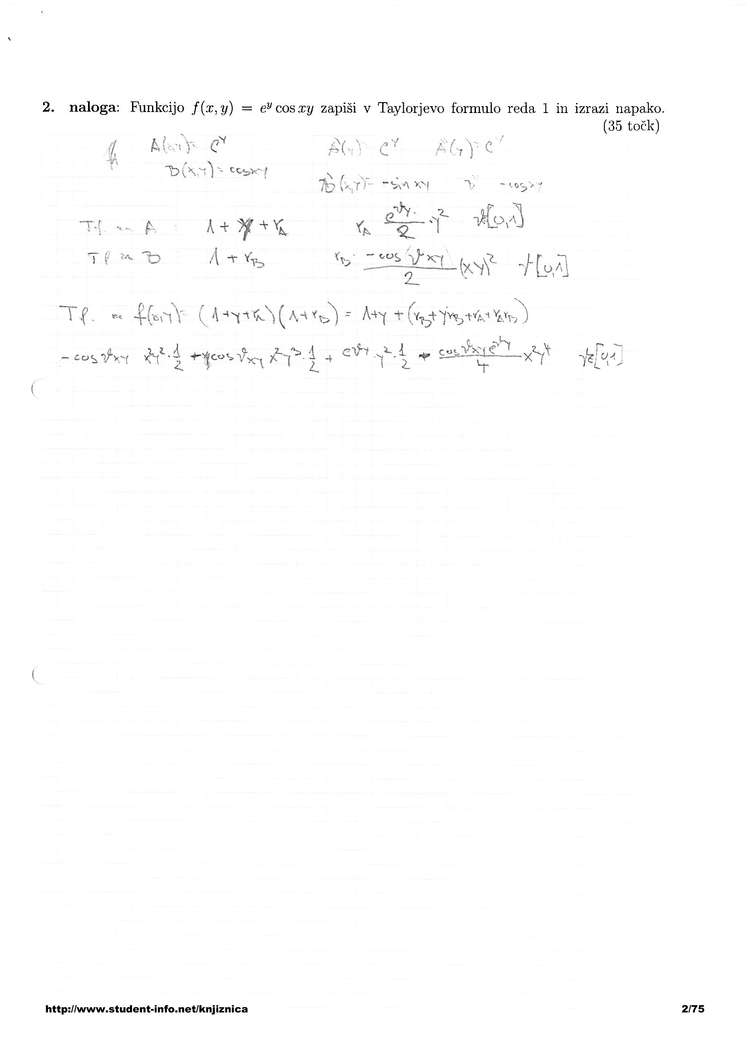 2. naloga: Funkcijo f(x, y) = e^y cos xy zapiši v Taylorjevo formulo reda 1 in izrazi napako.
(35 točk)
A(x,y)= e^y   Ȧ(y)= e^y   Ä(y)= e^y
B(x,y)= cosxy
Ḃ(x,y)= -sin xy   -cosxy
T.f. za A : 1 + y + r_A   r_A e^{ϑy}/2 · y^2   ϑ∈[0,1]
T f za B   1 + r_B   r_B: -cos(ϑxy)/2 (xy)^2   ϑ[0,1]
T f. za f(x,y)= (1+y+r_A)(1+r_B) = 1+y + (r_B+yr_B+r_A+r_A r_B)
-cos ϑxy x^2y^2·1/2 + ycos ϑxy x^2y^3·1/2 + e^{ϑy} y^2·1/2 + cosϑxy e^{ϑy}/4 x^2y^4   ϑ∈[0,1]
http://www.student-info.net/knjiznica   2/75